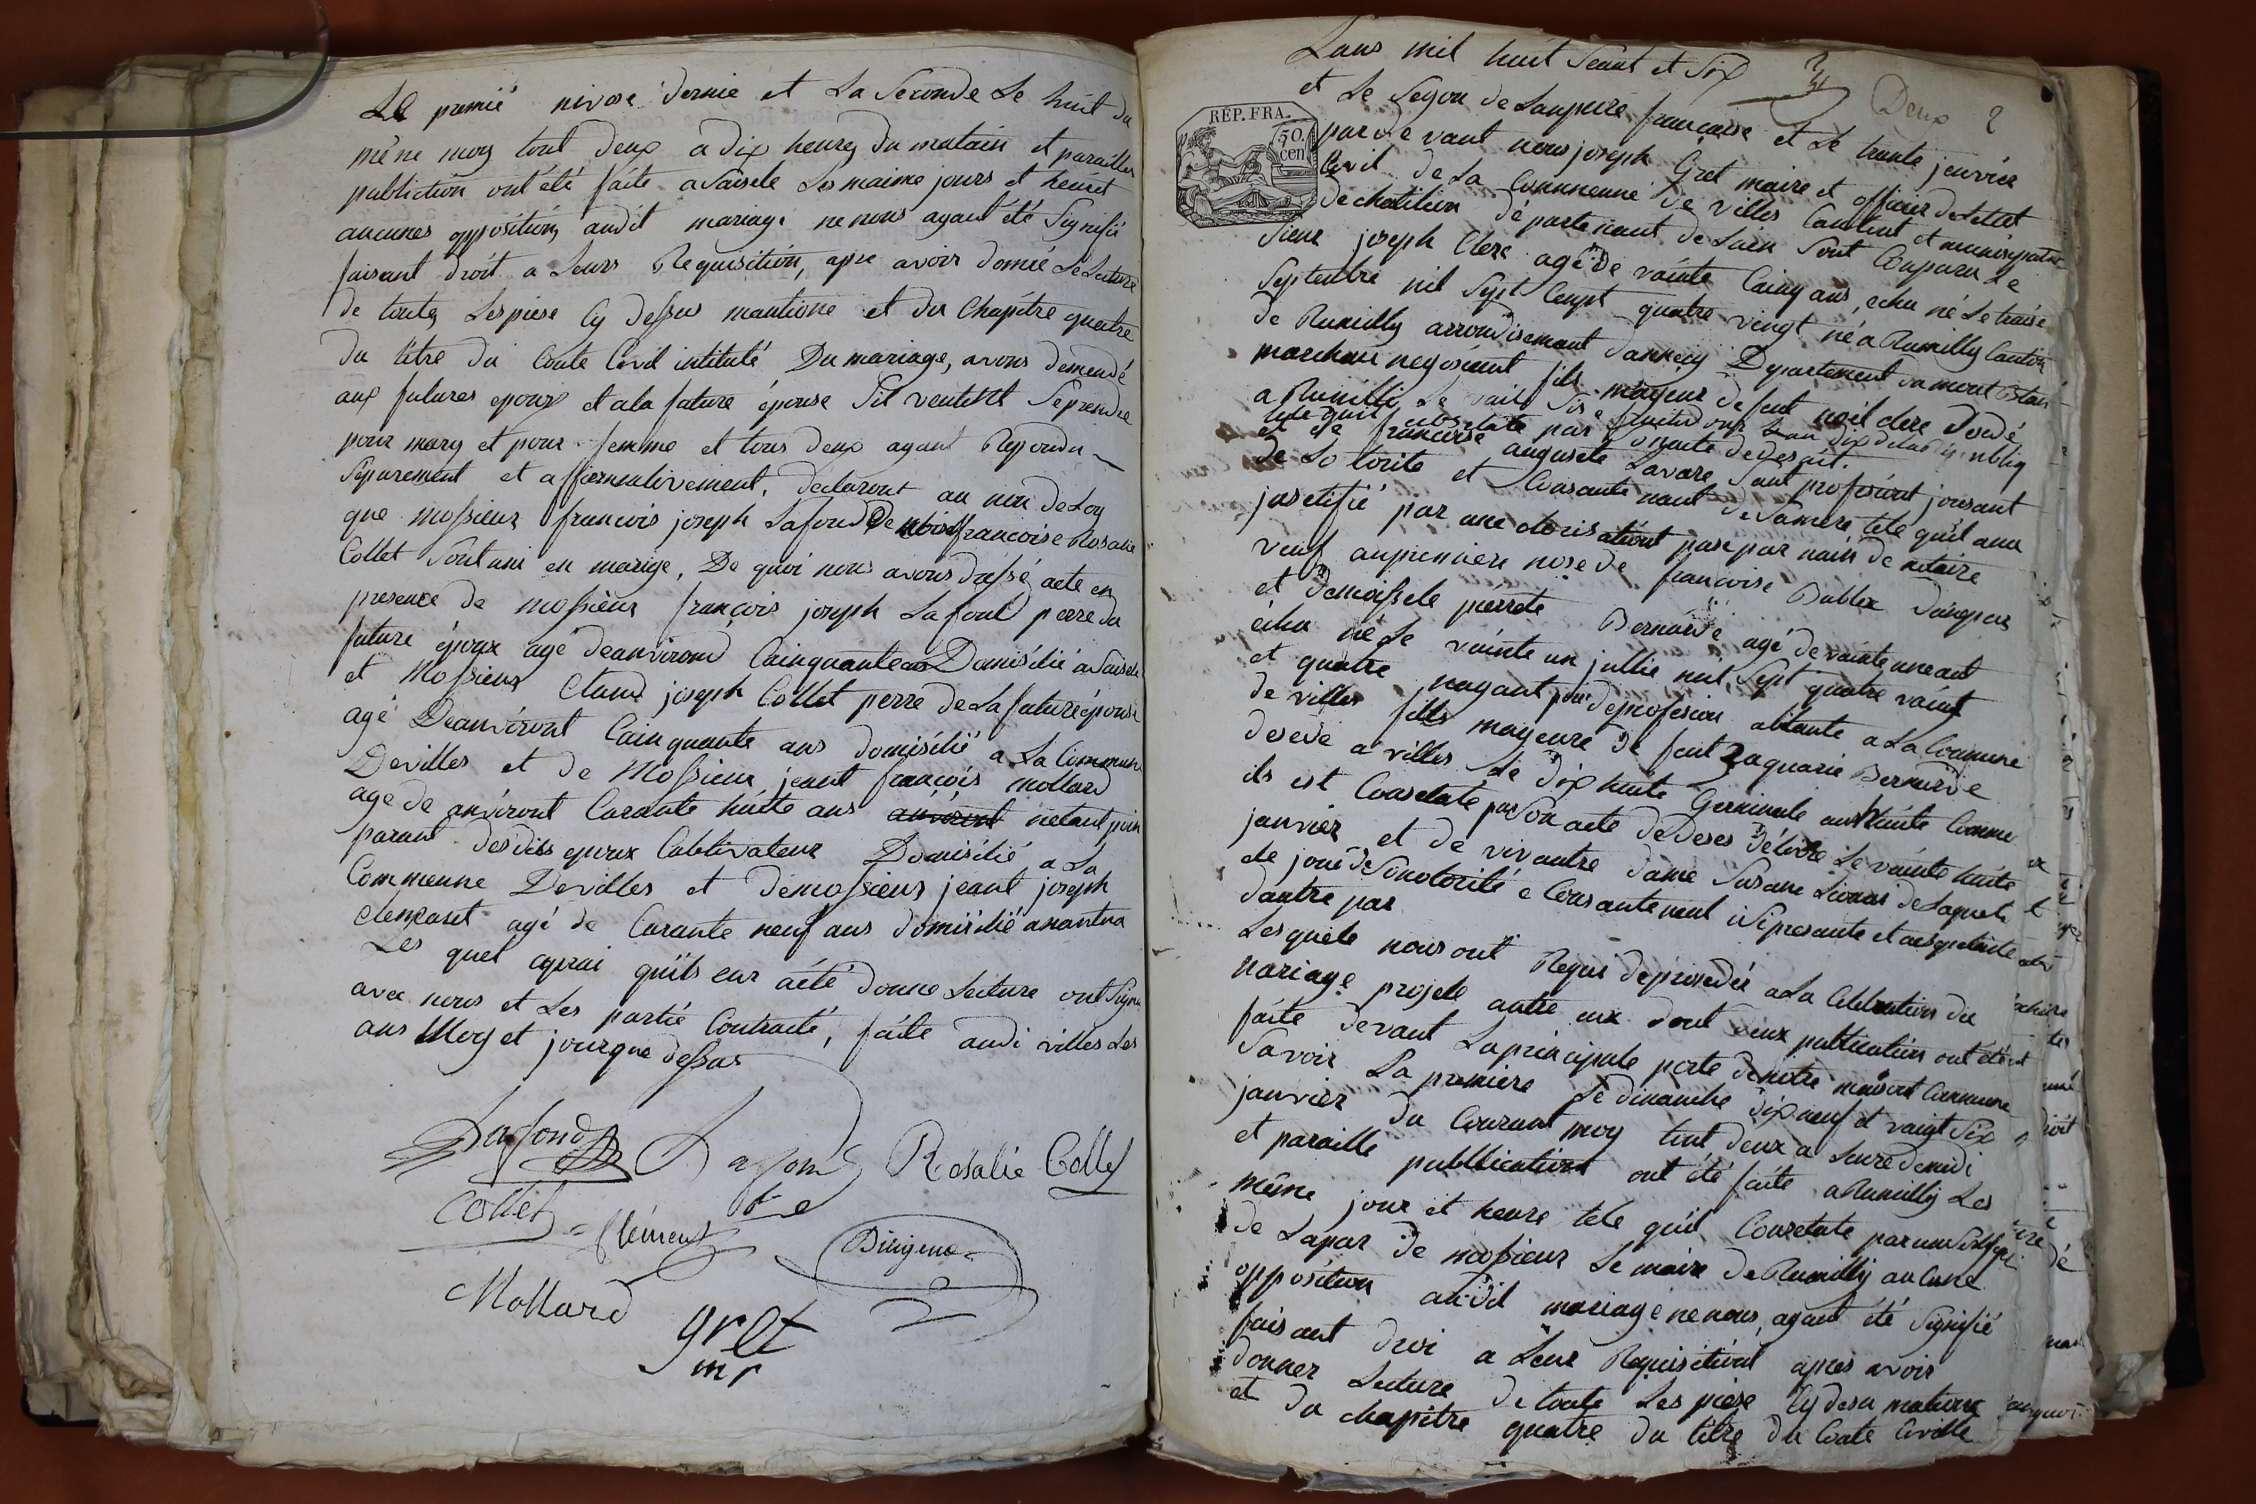 Le premié nivose dernie et La Seconde Le huit du
mème moy tout deux a dix heures du matain et parailles
publiction ont été faite a Saisele Les maime jours et heuret
aucunes opposition, audit mariage ne nous ayant été Signifié
faisant droit a Leurs Requisition, apre avoir donné Le Lecture
de toutes Les piese Cy dessus mantione et du Chapitre quatre
du titre du Coute Civil intitulé Du mariage, avons demendé
aux futures epoux et a la future épouse Sil veutist Se prendre
pour mary et pour femme et tous deux ayant Repondu
Séparement et affirmativement, declaront au non de Loy
que mossieur francois joseph Lafond De francoise Rosalie
Collet Sont uni en mariage, De quoi nous avons dressé acte en
presence de mossieur françois joseph Lafont perre du
future époux agé deanvirond Cainquante ans Domisilié a Saisele
et Mossieur Claud joseph Collet perre de La future épouse
agé Deanviront Cainquante ans domisilié a La Commune
De villes et de Mossieur jeant francois mollard
age de anviront Carante huitte ans anviront netant poin
parant des dits epoux Cultivateur Domisilié a La
Commeune De villes et de mossieur jeant joseph
agé de Carante neuf ans domisilié anantua
Les quel aprai quils eur aété donne Lecture ont Signé
avec nous et Les partie Contracté, faite audi villes Les
ans Moy et jour que dessus
Lafond Lafond Rosalie Collet
Collet Clément
Mollard
gret
mr
Lans mil huit Seant et Six
Deux 2
et Le Segon de Lanpire française et Le trante jenvier
RÉP. FRA.
50.
cen
par de vant nous joseph Gret maire et officier de Letat
Civil de La Communeune de villes Canton et
de chatilion département de Lain Sont Conparu Le
Sieur joseph Clere agé de vainte Cainq ans, echu né Le traise
Septembre mil Sept Cenpt quatre vingt né a Rumilly Canton
de Rumilly arrondisemant dannecy Departement du mont Blan
marchan negosiant fils mayeur de feut noil clere Desédé
a Rumilli
et de francoise auguste Lavore Sant profesiont jouisant
de So torite et Consante mant de Samere, tele quil ana
justifié par une pase par main de notaire
veuf aupremiere nose de francoise Dublex dunepar
et demoissele pierrete Bernarde agé de vainte une ant
échu né Le vainte un jullie mil Sept quatre vaint
et quatre nayant poin de profesion abitante a La Commune
de villes fille mayeure de feut Zaquarie Bernarde
desedé a villes Le dix huite Germinale an huite Comme
ils est Constaté par Son acte de deses délivre Le vainte huite
janvier et de vivantre dame Susane Lionai de Laquele
ele joui de Sonotorité e Consante ment isi presante et
dautre par
Lesquele nous ont Requi deprosedér a La Celebration du
mariage projeté antre eux dont deux publication ont été
faite devant La principale porte de notre maisont Commune
Savoir La premiere Le dimanche dix neuf et vaigt Six
janvier du Courant moy tout deux a Leure demidi
et paraille publlication ont été faite a Rumilly Les
même jour et heure tele quil Constate par un
de Lapar de mossieur Le maire de Rumilly aucune
opposition audit mariage ne nous, ayant été Signifié
faisant droi a Leur Requisitiont apres avoir
donner Lecture de toute Les piese Cy desu mationé
et du chapitre quatre du titre du Coute Civille